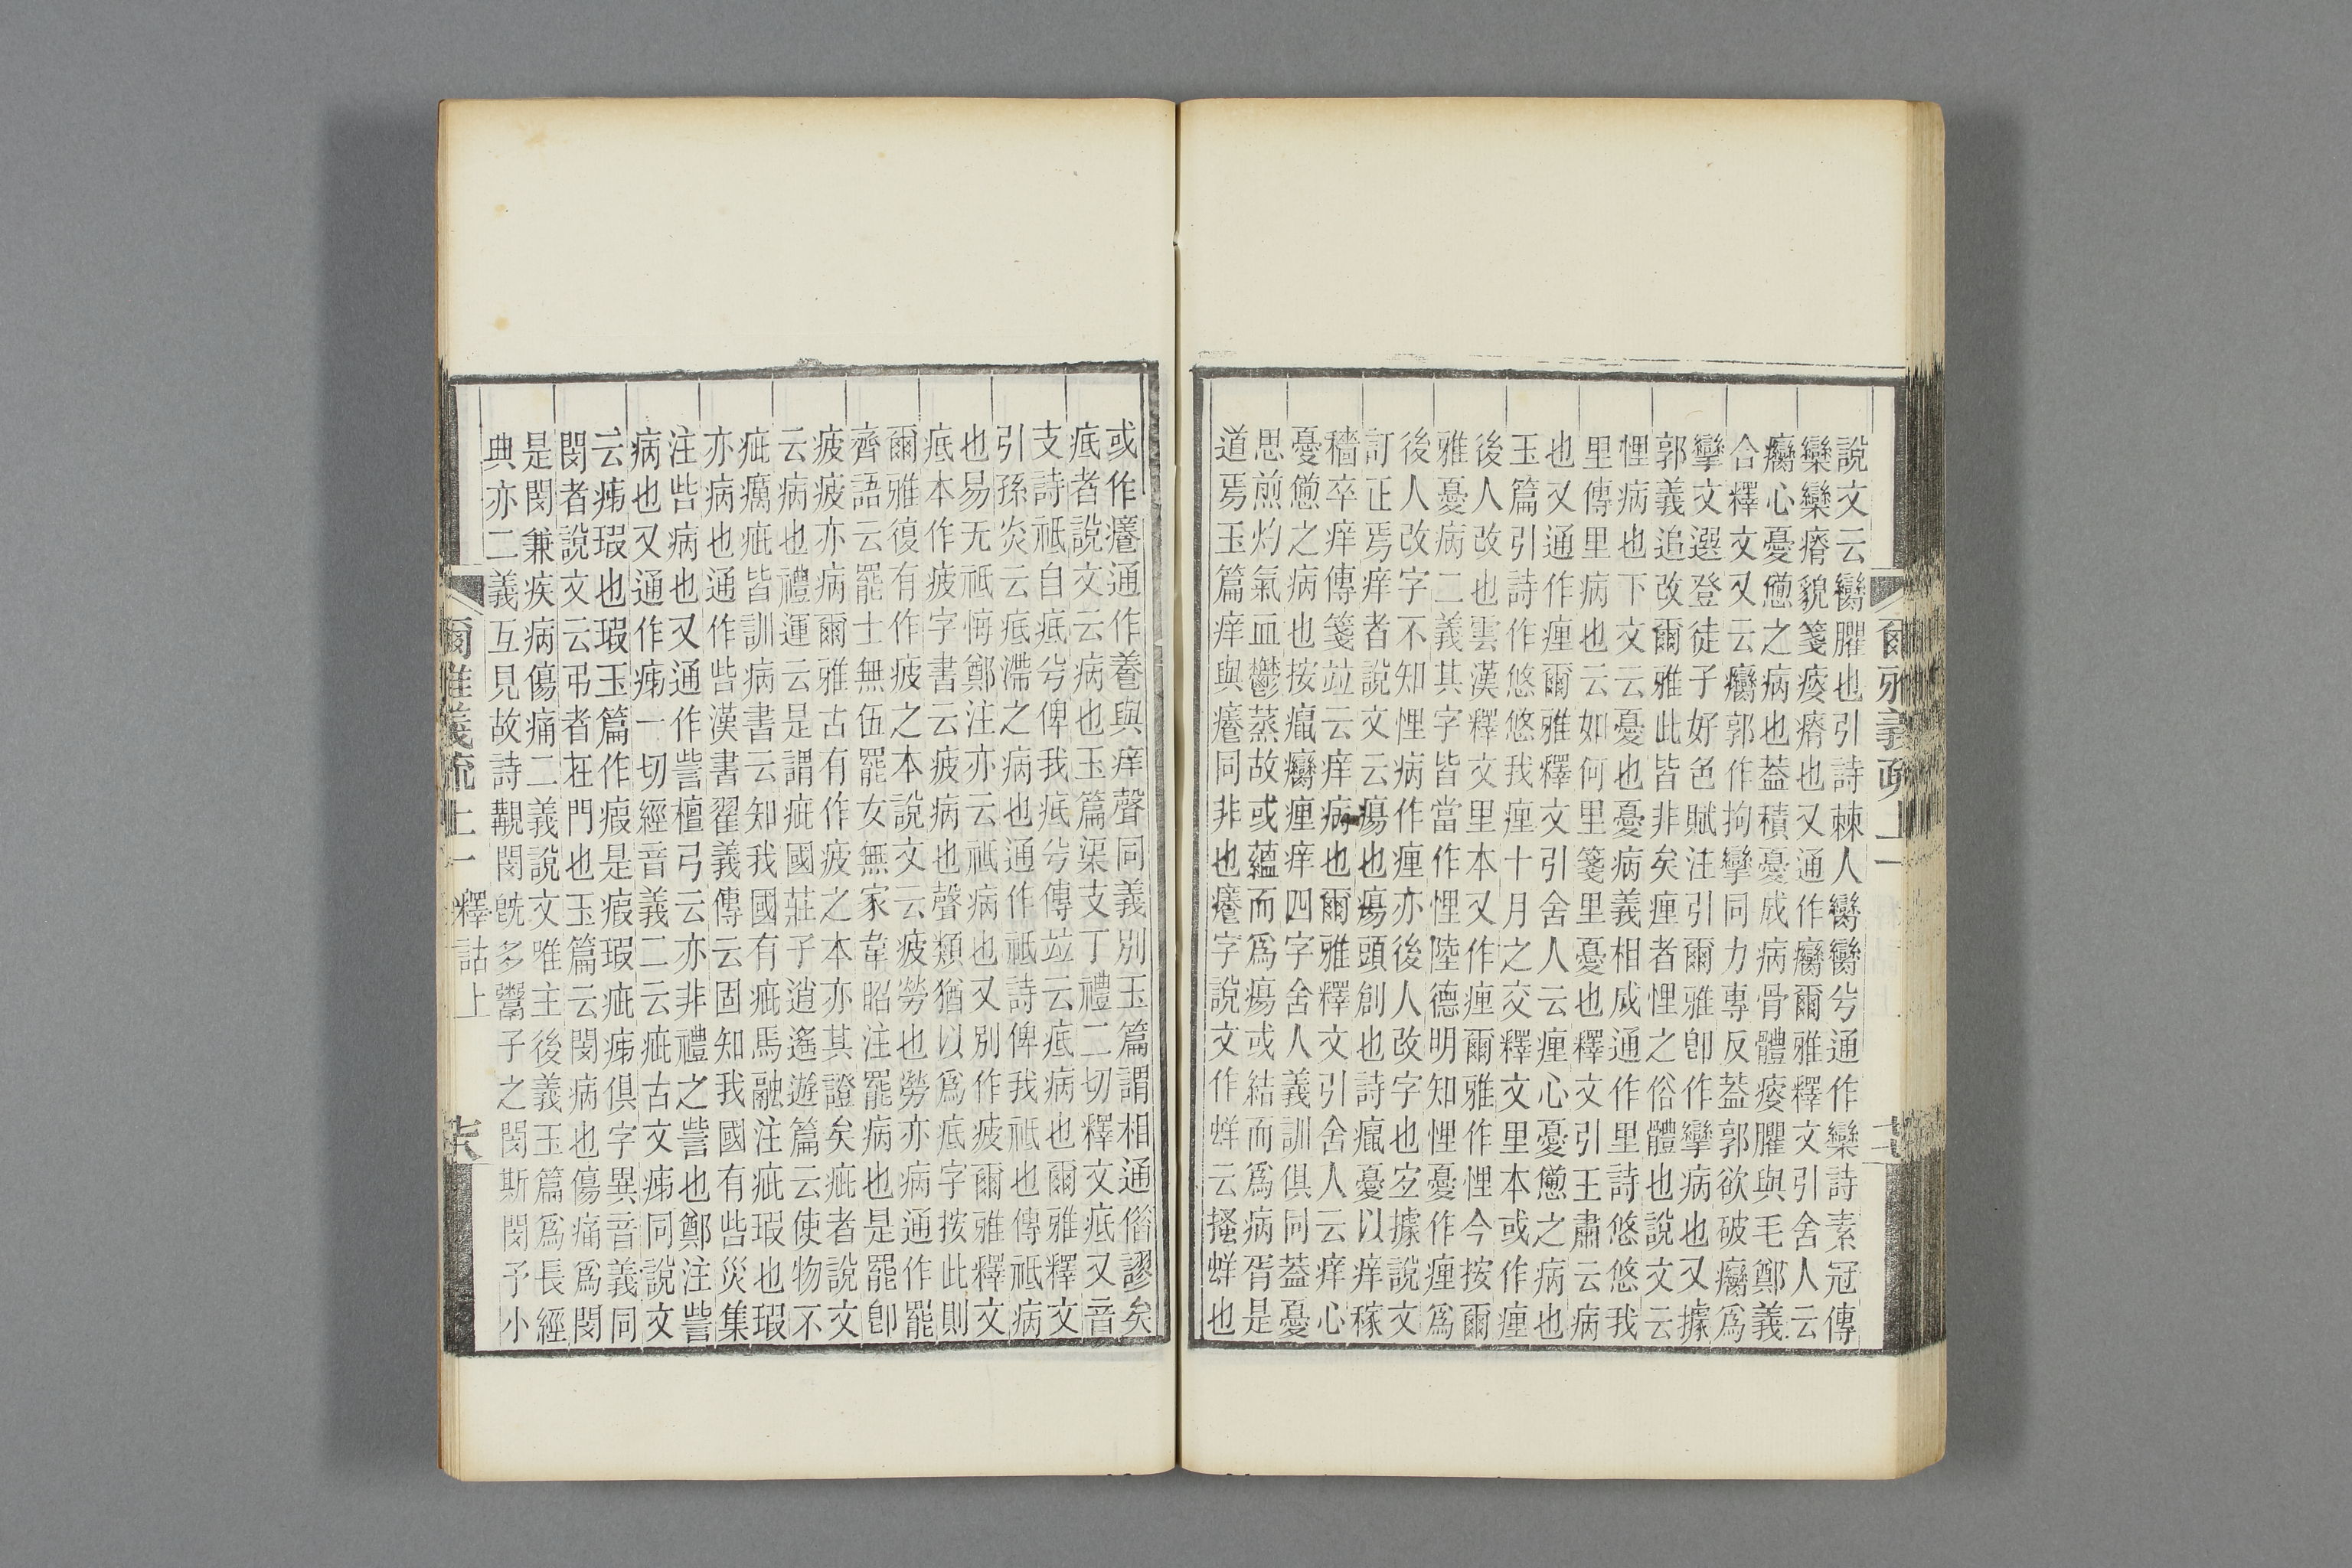 說文云臠臞也引詩棘人臠臠兮通作欒詩素冠傳
欒欒瘠貌箋瘦瘠也又通作癵爾雅釋文引舍人云
癵心憂憊之病也葢積憂成病骨體瘦臞與毛鄭義
合釋文又云癵郭作拘攣同力專反葢郭欲破癵爲
攣文選登徒子好色賦注引爾雅卽作攣病也又據
郭義追改爾雅此皆非矣㾖者悝之俗體也說文云
悝病也下文云憂也憂病義相成通作里詩悠悠我
里傳里病也云如何里箋里憂也釋文引王肅云病
也又通作㾖爾雅釋文引舍人云㾖心憂憊之病也
玉篇引詩作悠悠我㾖十月之交釋文里本或作㾖
後人改也雲漢釋文里本又作㾖爾雅作悝今按爾
雅憂病二義其字皆當作悝陸德明知悝憂作㾖爲
後人改字不知悝病作㾖亦後人改字也㝎據說文
訂正焉痒者說文云瘍也瘍頭創也詩癙憂以痒稼
穡卒痒傳箋竝云痒病也爾雅釋文引舍人云痒心
憂憊之病也按癙癵㾖痒四字舍人義訓俱同葢憂
思煎灼氣血鬱蒸故或蘊而爲瘍或結而爲病胥是
道焉玉篇痒與癢同非也癢字說文作蛘云搔蛘也
爾雅義疏 上一
或作癢通作養與痒聲同義別玉篇謂相通俗謬矣
疷者說文云病也玉篇渠支丁禮二切釋文疷又音
支詩祇自疷兮俾我疷兮傳竝云疷病也爾雅釋文
引孫炎云疷滯之病也通作祇詩俾我祇也傳祇病
也易无祇悔鄭注亦云祇病也又別作疲爾雅釋文
疷本作疲字書云疲病也聲類猶以爲疷字按此則
爾雅復有作疲之本說文云疲勞也勞亦病通作罷
齊語云罷士無伍罷女無家韋昭注罷病也是罷卽
疲疲亦病爾雅古有作疲之本亦其證矣疵者說文
云病也禮運云是謂疵國莊子逍遙遊篇云使物不
疵癘疵皆訓病書云知我國有疵馬融注疵瑕也瑕
亦病也通作呰漢書翟義傳云固知我國有呰災集
注呰病也又通作訾檀弓云亦非禮之訾也鄭注訾
病也又通作㾊一切經音義二云疵古文㾊同說文
云㾊瑕也瑕玉篇作瘕是瘕瑕疵㾊俱字異音義同
閔者說文云弔者在門也玉篇云閔病也傷痛爲閔
是閔兼疾病傷痛二義說文唯主後義玉篇爲長經
典亦二義互見故詩覯閔旣多鬻子之閔斯閔予小
爾雅義疏 上一 釋詁上